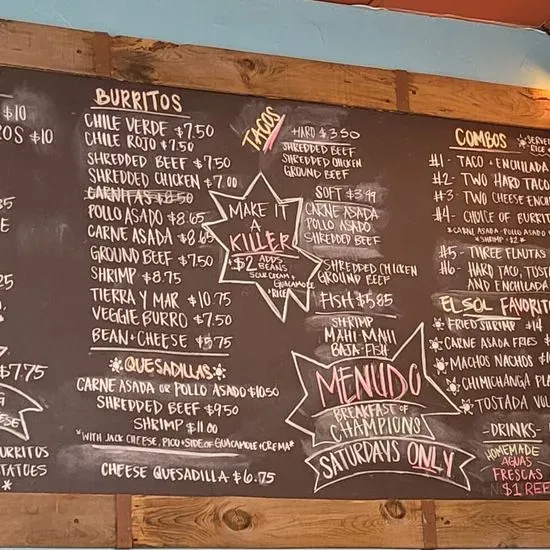 $10
ROS $10
$7.75
BURRITOS
TATOES
*
BURRITOS
CHILE VERDE $7.50
CHILE ROJO $7.50
SHREDDED BEEF $7.50
SHREDDED CHICKEN $7.00
CARNITAS $8.50
POLLO ASADO $8.65
CARNE ASADA $8.65
GROUND BEEF $7.50
SHRIMP $8.75
TIERRA Y MAR $10.75
VEGGIE BURRO $7.50
BEAN + CHEESE $5.75
QUESADILLAS
CARNE ASADA OR POLLO ASADO $10.50
SHREDDED BEEF $9.50
SHRIMP $11.00
*WITH JACK CHEESE, PICO + SIDE OF GUACAMOLE + CREMA*
CHEESE QUESADILLA $6.75
MAKE IT
A
KILLER
$2 ADDS
BEANS
SOUR CREAM +
GUACAMOLE
+ RICE
TACOS
HARD $3.50
SHREDDED BEEF
SHREDDED CHICKEN
GROUND BEEF
SOFT $3.99
CARNE ASADA
POLLO ASADO
SHREDDED BEEF
SHREDDED CHICKEN
GROUND BEEF
FISH $5.85
SHRIMP
MAHI MAHI
BAJA FISH
MENUDO
BREAKFAST OF
CHAMPIONS
SATURDAYS ONLY
COMBOS
SERVE
RICE
#1- TACO + ENCHILADA
#2- TWO HARD TACO
#3- TWO CHEESE ENCH
#4- CHOICE OF BURRIT
*CARNE ASADA - POLLO ASADO
*SHRIMP - $2*
#5- THREE FLAUTAS
#6- HARD TACO, TOST
AND ENCHILADA
EL SOL FAVORIT
FRIED SHRIMP $14
CARNE ASADA FRIES
MACHOS NACHOS $1
CHIMICHANGA PLA
TOSTADA VUL
-DRINKS-
HOMEMADE
AGUAS
FRESCAS
$1 REF